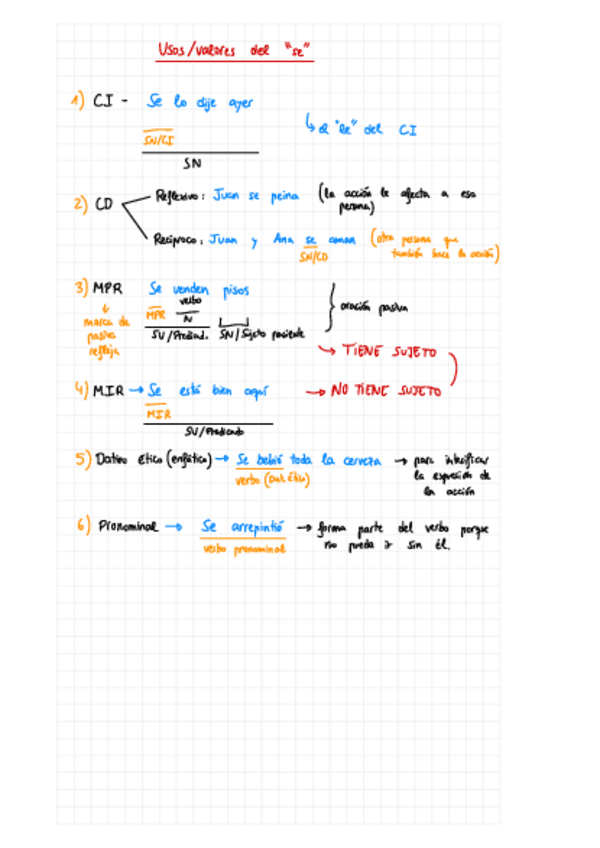 Usos/valores del "se"
1) CI - Se lo dije ayer
↳ el "le" del CI
SN/CI
SN
2) CD
Reflexivo: Juan se peina (la acción le afecta a esa persona)
Recíproco: Juan y Ana se aman (otra persona que también hace la acción)
SN/CD
3) MPR Se venden pisos
verbo
MPR N
SV/Predicad. SN/Sujeto paciente
oración pasiva
↓
marca de
pasiva
refleja
→ TIENE SUJETO
4) MIR → Se está bien aquí → NO TIENE SUJETO
MIR
SV/Predicado
5) Dativo ético (enfático) → Se bebió toda la cerveza → para intensificar
verbo (Dat. Ético)
la expresión de
la acción
6) Pronominal → Se arrepintió → forma parte del verbo porque
verbo pronominal
no puede ir sin él.